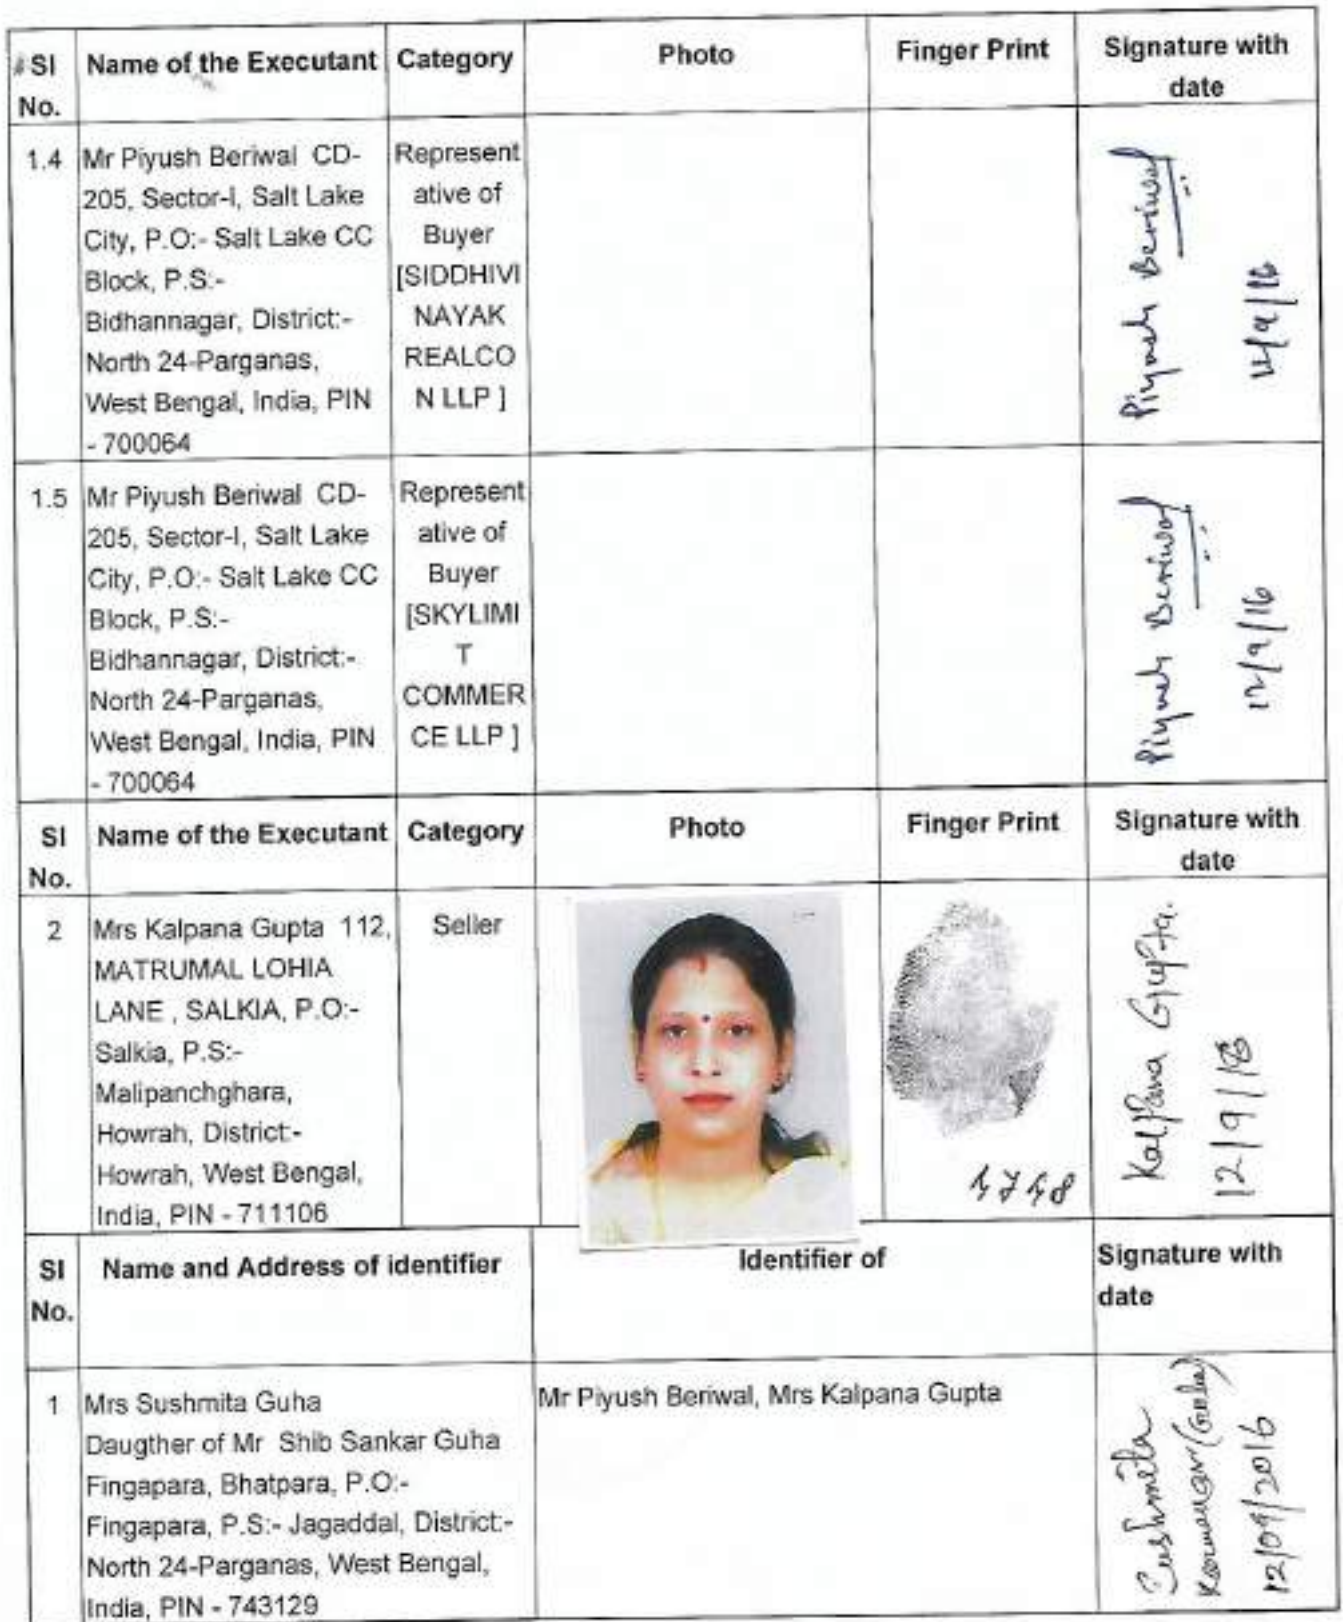 Sl No. Name of the Executant Category Photo Finger Print Signature with date
1.4 Mr Piyush Beriwal CD-
205, Sector-I, Salt Lake
City, P.O:- Salt Lake CC
Block, P.S:-
Bidhannagar, District:-
North 24-Parganas,
West Bengal, India, PIN
- 700064
Represent
ative of
Buyer
[SIDDHIVI
NAYAK
REALCO
N LLP ]
Piyush Beriwal
1.5 Mr Piyush Beriwal CD-
205, Sector-I, Salt Lake
City, P.O:- Salt Lake CC
Block, P.S:-
Bidhannagar, District:-
North 24-Parganas,
West Bengal, India, PIN
- 700064
Represent
ative of
Buyer
[SKYLIMI
T
COMMER
CE LLP ]
Piyush Beriwal
12/9/16
Sl No. Name of the Executant Category Photo Finger Print Signature with date
2 Mrs Kalpana Gupta 112,
MATRUMAL LOHIA
LANE , SALKIA, P.O:-
Salkia, P.S:-
Malipanchghara,
Howrah, District:-
Howrah, West Bengal,
India, PIN - 711106
Seller
Kalpana Gupta.
Sl No. Name and Address of identifier Identifier of Signature with date
1 Mrs Sushmita Guha
Daugther of Mr Shib Sankar Guha
Fingapara, Bhatpara, P.O:-
Fingapara, P.S:- Jagaddal, District:-
North 24-Parganas, West Bengal,
India, PIN - 743129
Mr Piyush Beriwal, Mrs Kalpana Gupta
Sushmita
(Guha)
12/09/2016